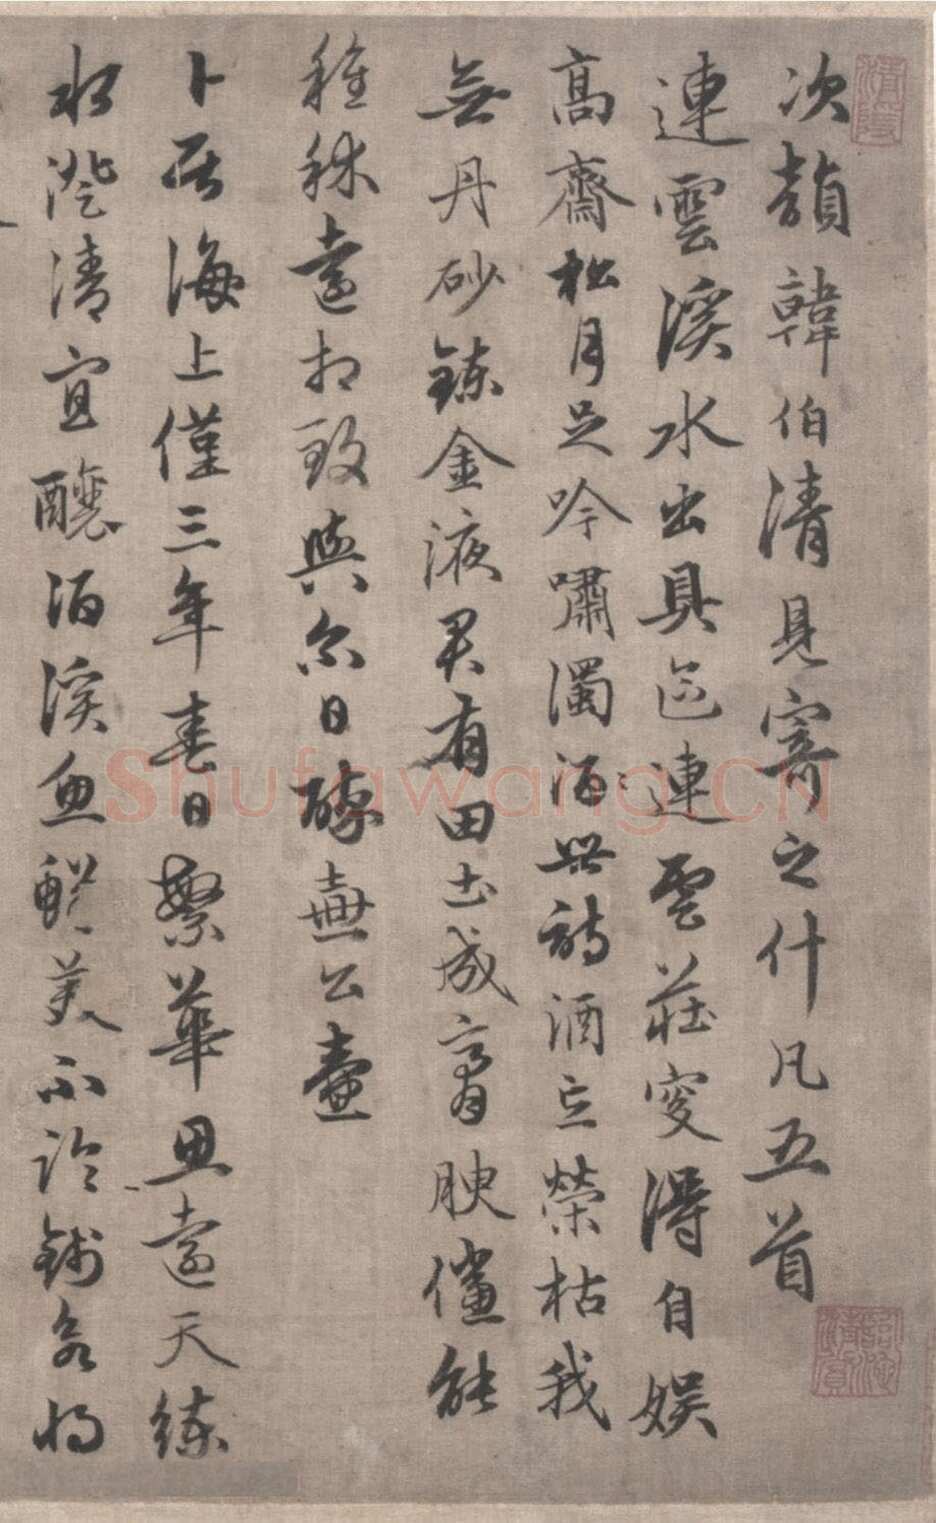 次韻韓伯清見寄之什凡五首
連雲溪水出具區連雲莊叜得自娛
高齋松月足吟嘯濁酒與詩酒忘榮枯我
無丹砂鍊金液君有田土成膏腴儻能
種秫遠相致與爾日醉壺公壺
卜居海上僅三年春日繁華思遠天練
水澄清宜釀酒溪魚鮮美不論錢客將
Shufawang.CN